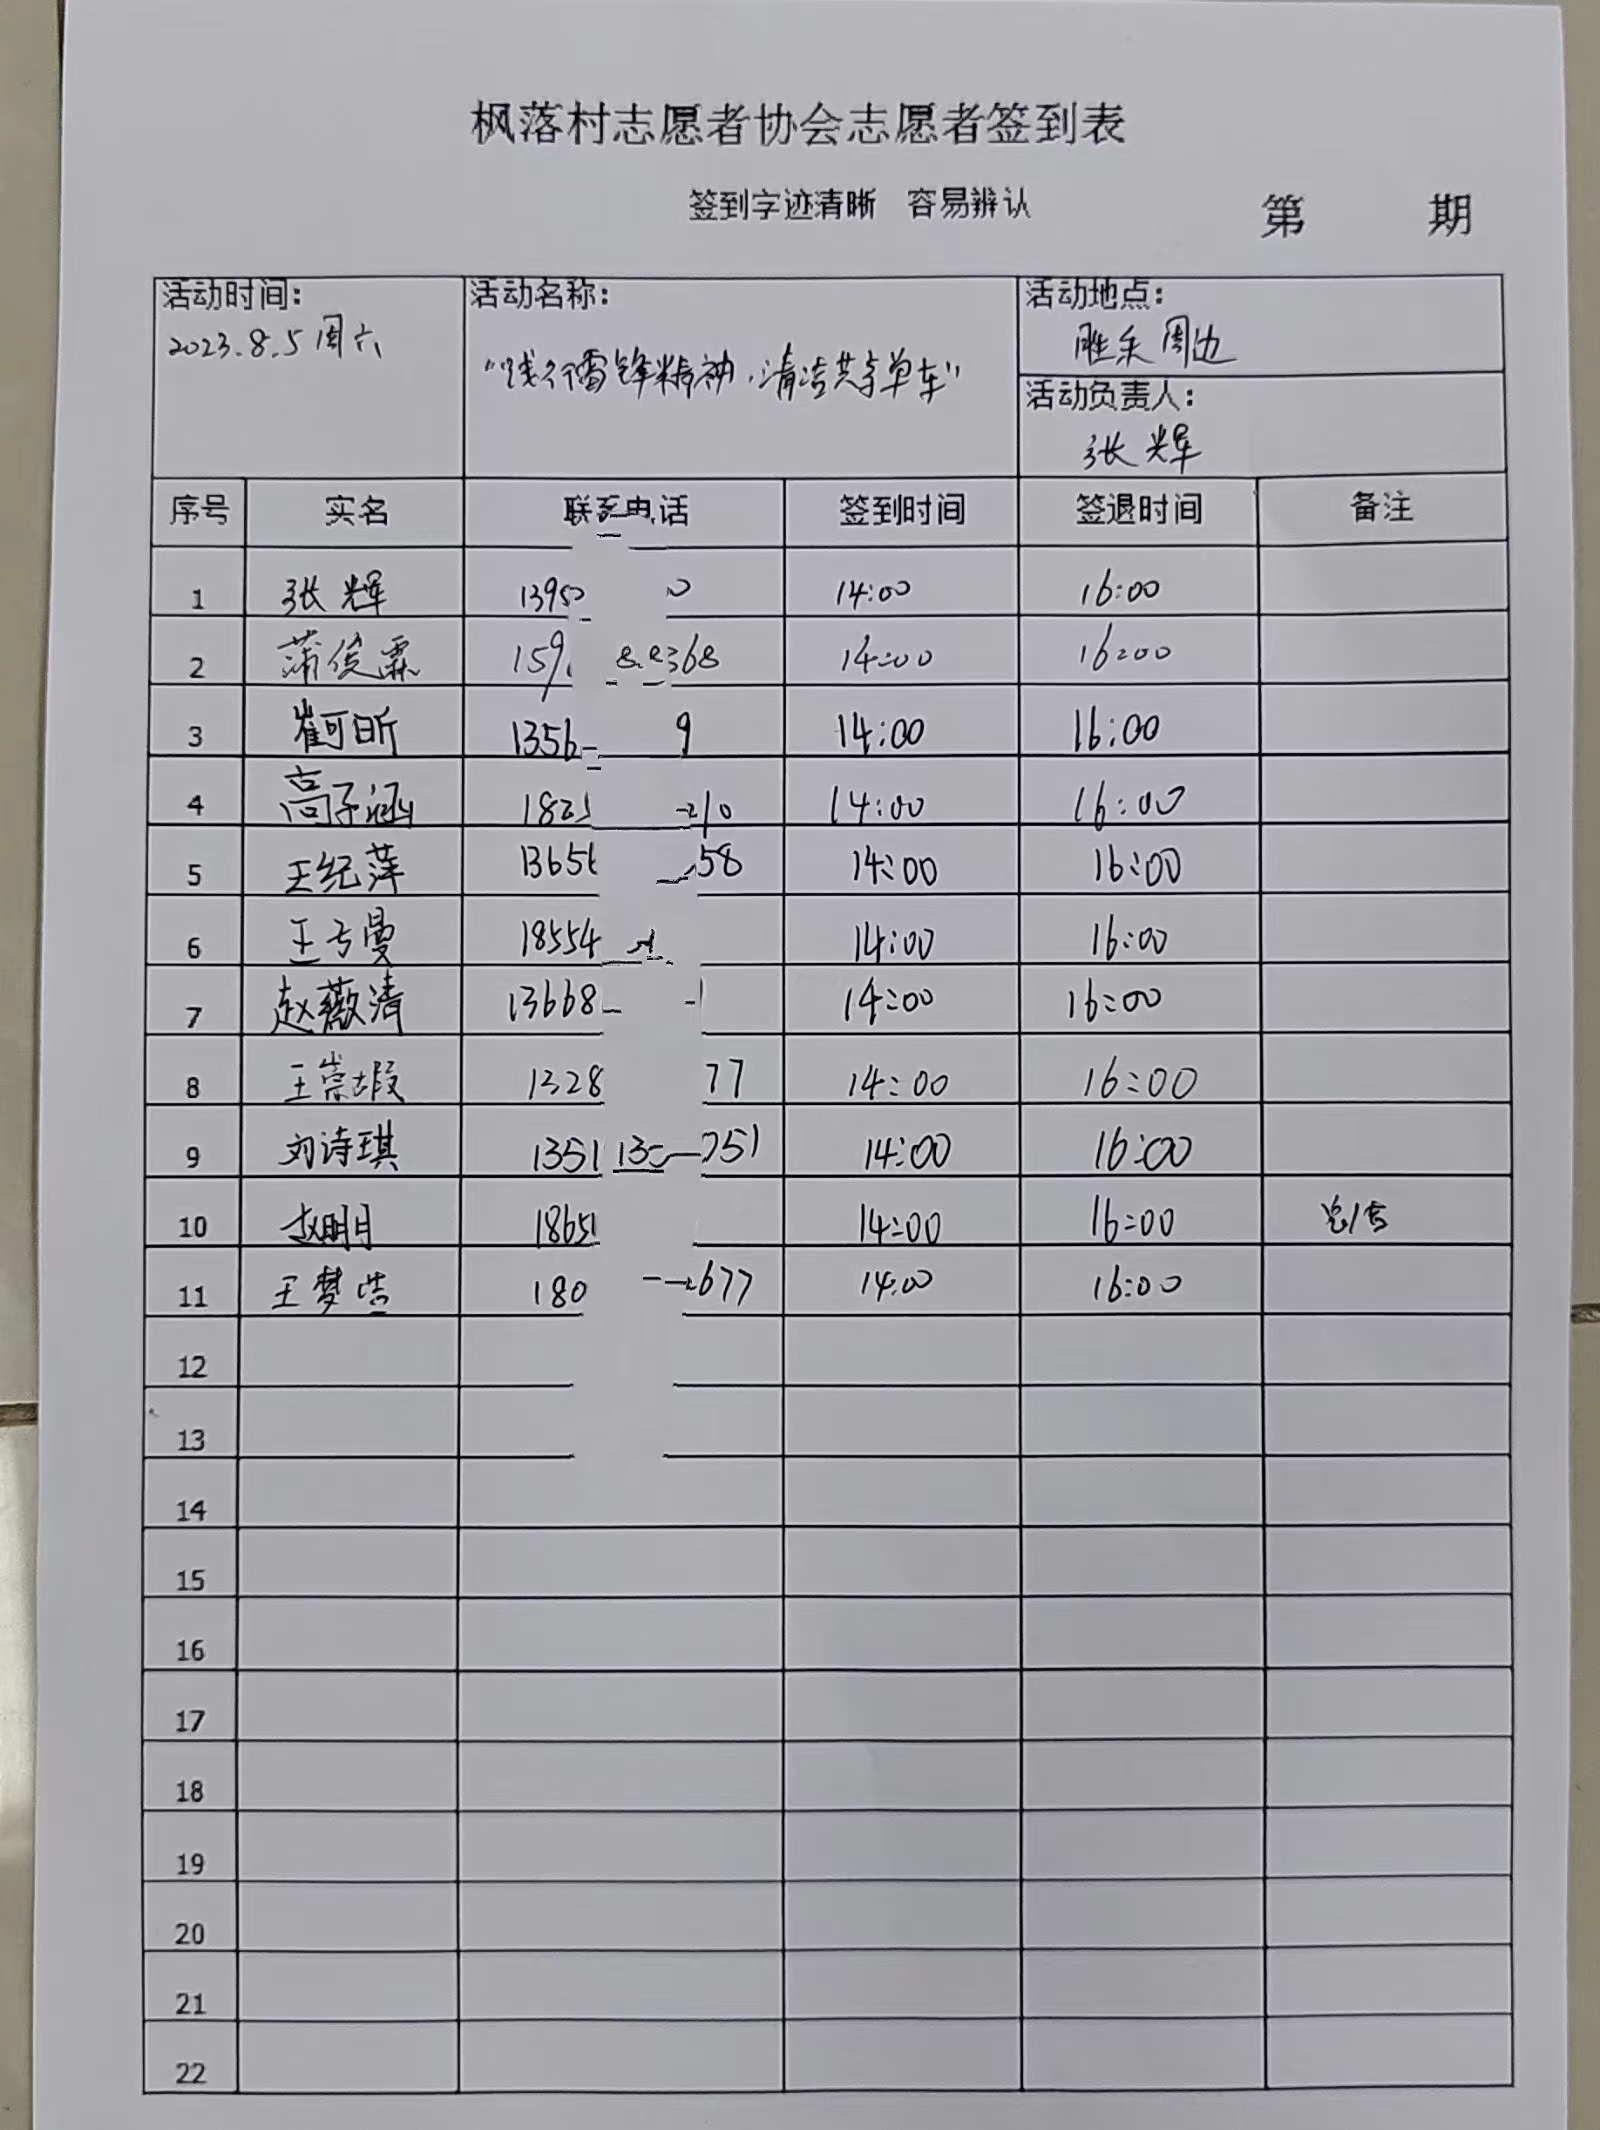 枫落村志愿者协会志愿者签到表
签到字迹清晰 容易辨认
第 期
活动时间: 活动名称: 活动地点:
2023.8.5周六 "践行雷锋精神,清洁共享单车" 胜采周边
活动负责人:
张辉
序号 实名 联系电话 签到时间 签退时间 备注
1 张辉 1395 14:00 16:00
2 蒲俊霖 159 368 14:00 16:00
3 崔可昕 1356 9 14:00 16:00
4 高子涵 182 210 14:00 16:00
5 王纪萍 1365 58 14:00 16:00
6 王 曼 18554 14:00 16:00
7 赵薇清 13668 14:00 16:00
8 王崇 1328 77 14:00 16:00
9 刘诗琪 1351 135 751 14:00 16:00
10 赵明月 1865 14:00 16:00
11 王梦 180 677 14:00 16:00
12
13
14
15
16
17
18
19
20
21
22